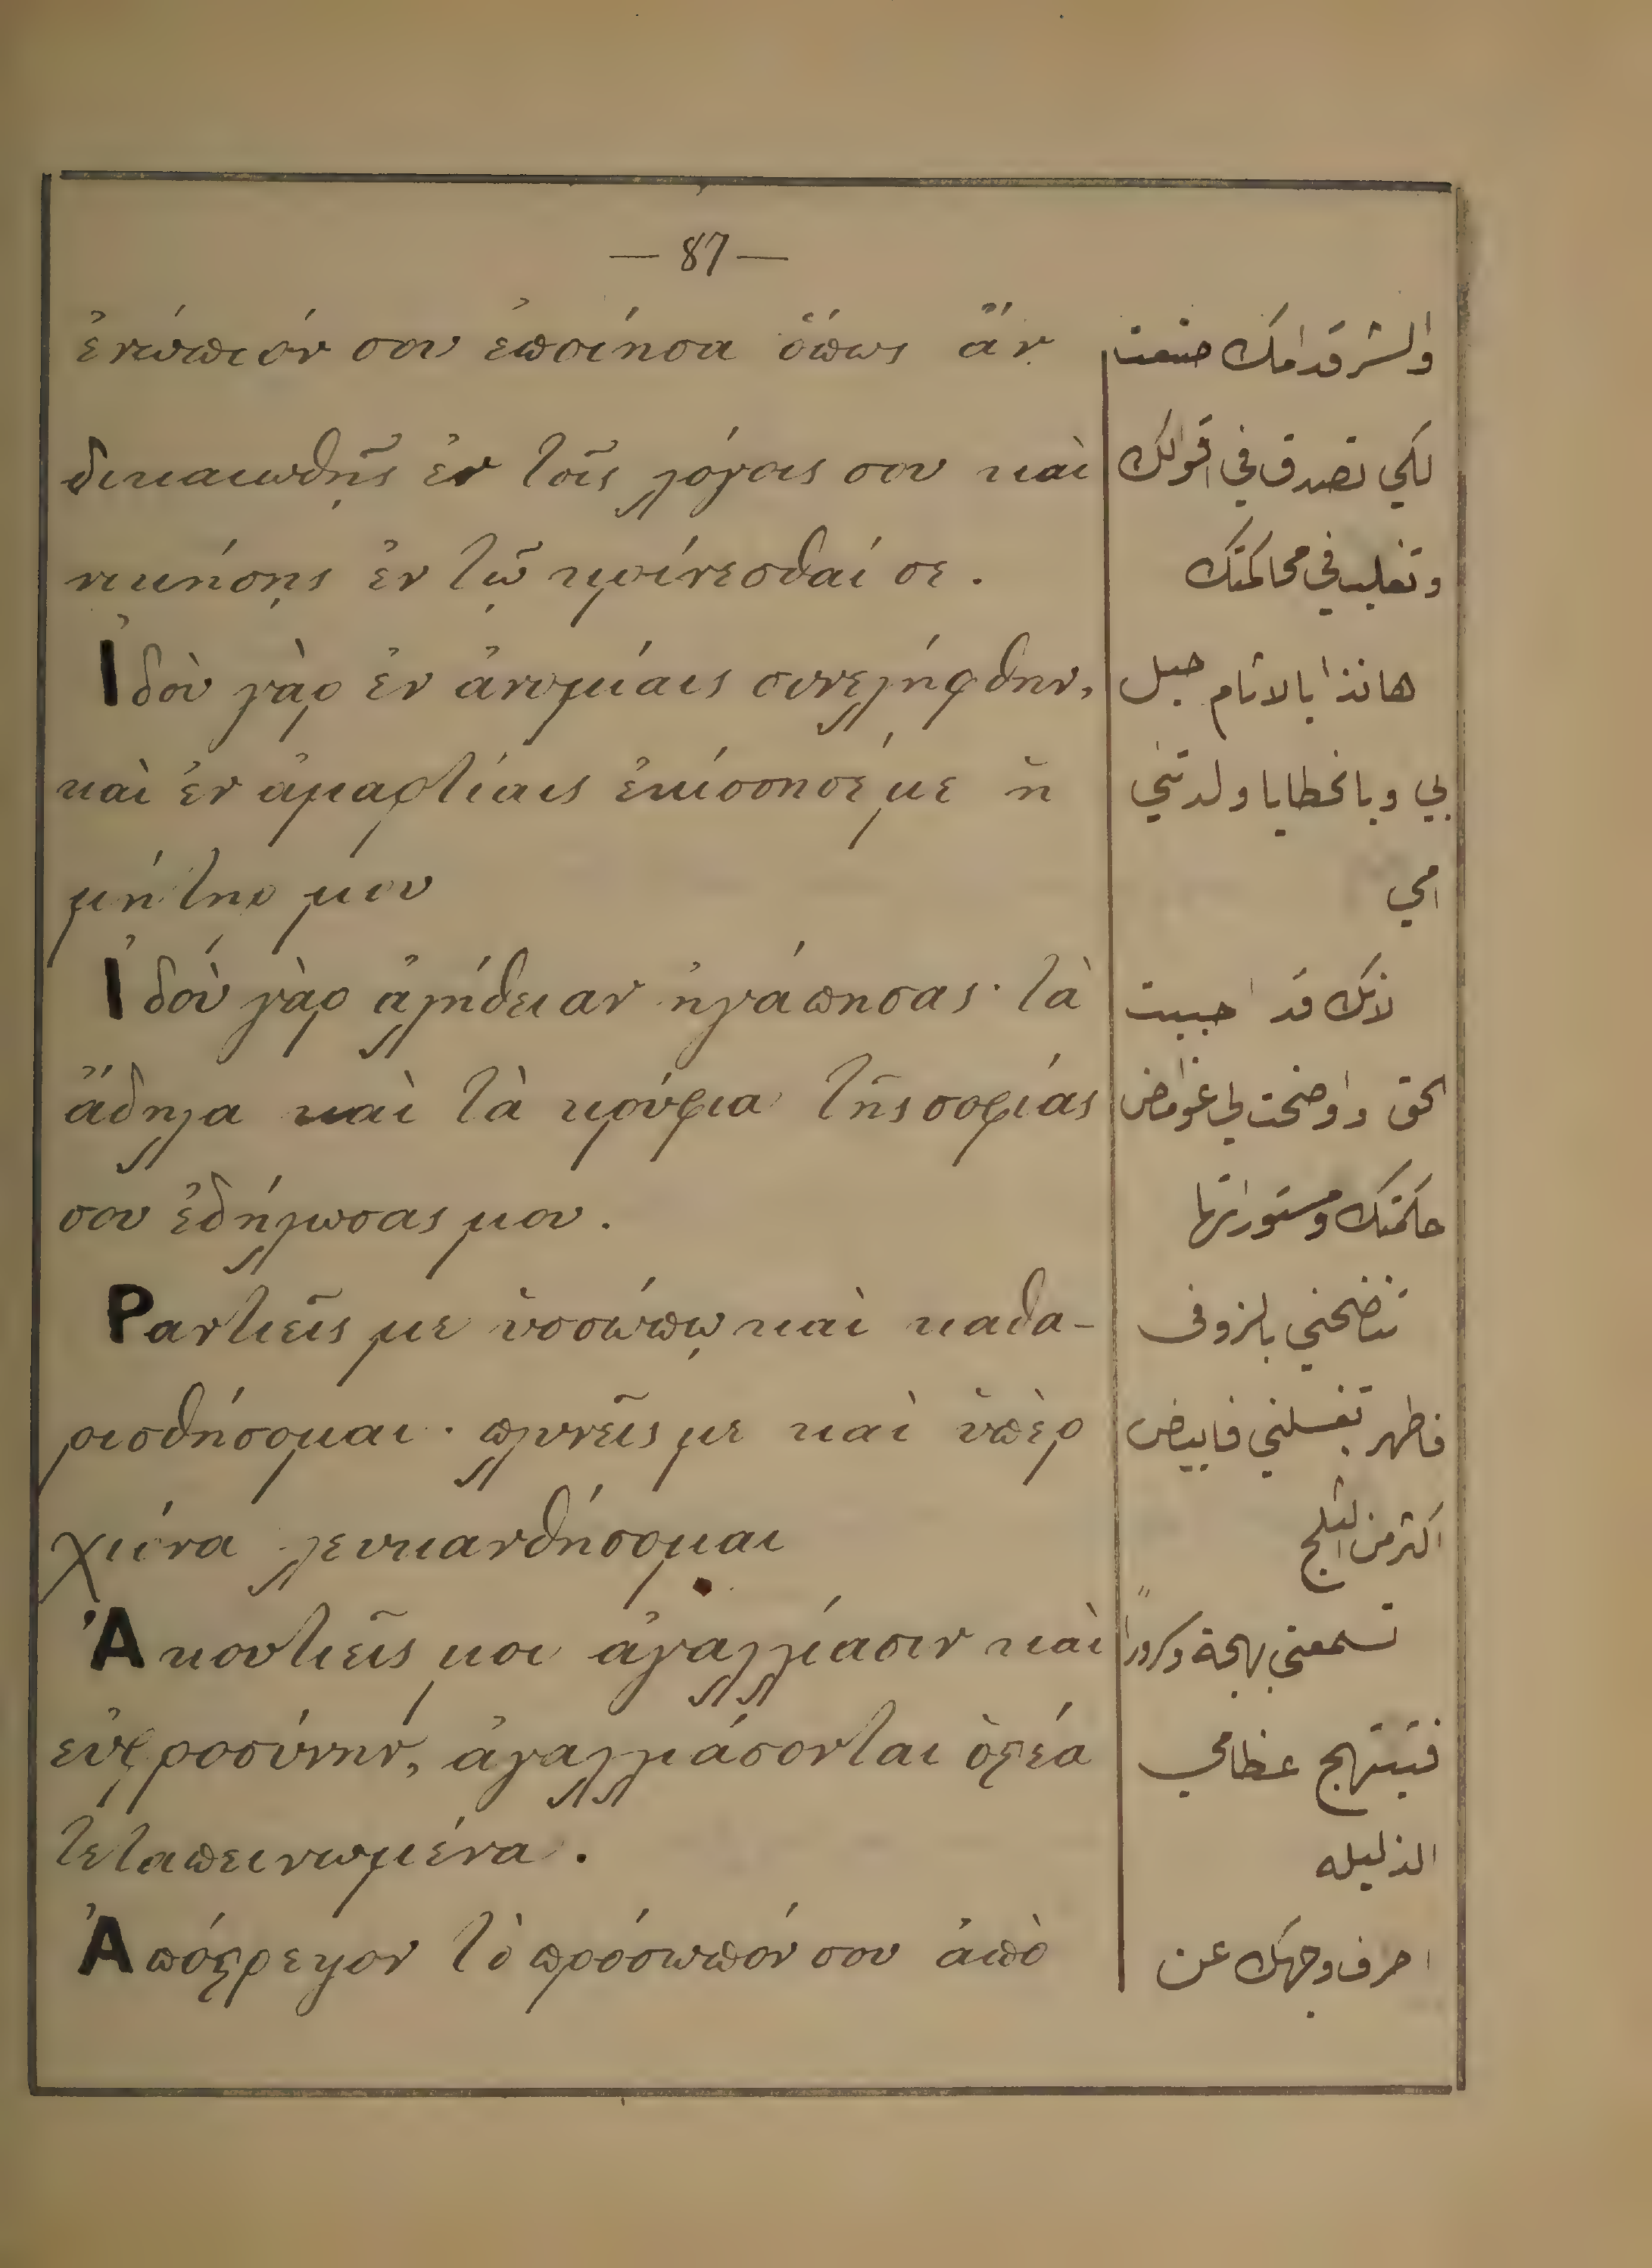 — 87 —
ἐνώπιόν σου ἐποίησα ὅπως ἂν
δικαιωθῇς ἐν τοῖς λόγοις σου καὶ
νικήσῃς ἐν τῷ κρίνεσθαί σε.
Ἰδοὺ γὰρ ἐν ἀνομίαις συνελήφθην,
καὶ ἐν ἁμαρτίαις ἐκίσσησέ με ἡ
μήτηρ μου
Ἰδοὺ γὰρ ἀλήθειαν ἠγάπησας· τὰ
ἄδηλα καὶ τὰ κρύφια τῆς σοφίας
σου ἐδήλωσας μου.
Ραντιεῖς με ὑσσώπῳ καὶ καθα-
ρισθήσομαι· πλυνεῖς με καὶ ὑπὲρ
χιόνα λευκανθήσομαι
Ἀκουτιεῖς μοι ἀγαλλίασιν καὶ
εὐφροσύνην, ἀγαλλιάσονται ὀστέα
τεταπεινωμένα.
Ἀπόστρεψον τὸ πρόσωπόν σου ἀπὸ
والشر قدامك صنعت
لكي تصدق في اقوالك
وتغلب في محاكمتك
هانذا بالاثام حبل
بي وبالخطايا ولدتني
امي
لانك قد احببت
الحق واوضحت لي غوامض
حكمتك ومستوراتها
تنضحني بالزوفى
فاطهر تغسلني فابيض
اكثر من الثلج
تسمعني بهجة وسرورًا
فتبتهج عظامي
الذليله
اصرف وجهك عن